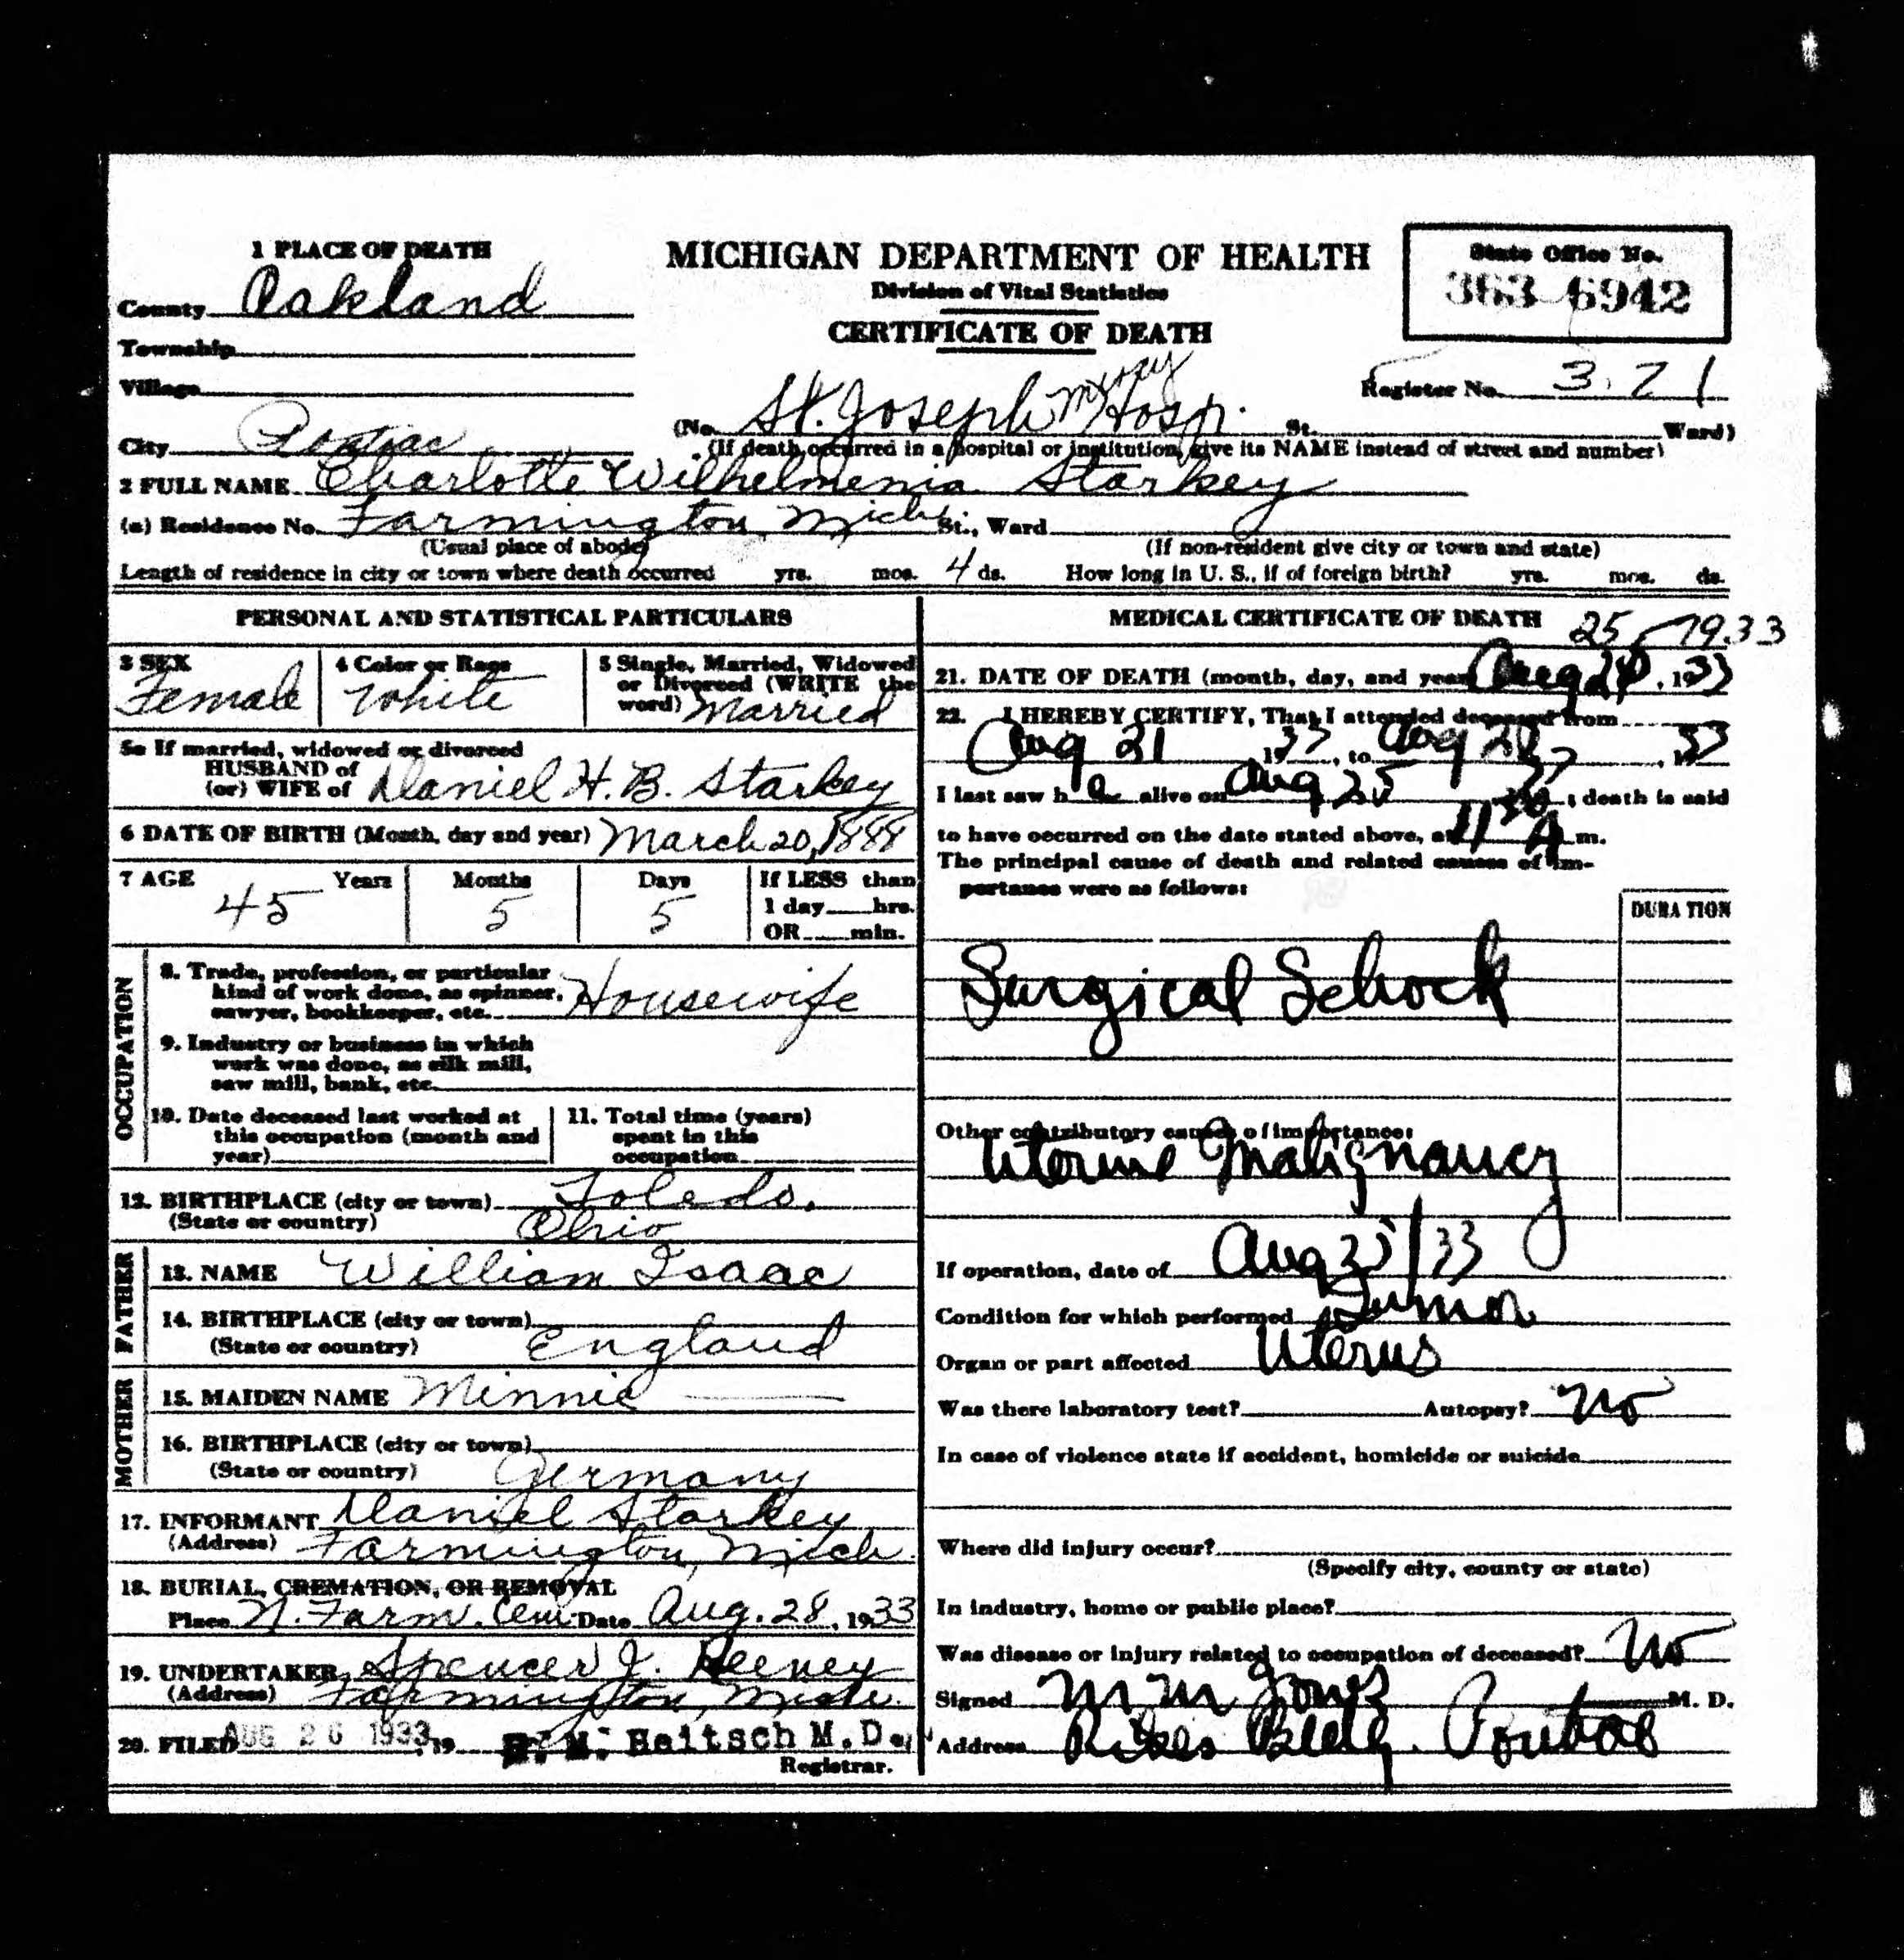 1 PLACE OF DEATH
MICHIGAN DEPARTMENT OF HEALTH
Division of Vital Statistics
CERTIFICATE OF DEATH
State Office No.
363 6942
County Oakland
Township
Village
Register No. 371
City Pontiac
(No. St. Joseph Mercy Hosp. St. Ward)
(If death occurred in a hospital or institution, give its NAME instead of street and number)
2 FULL NAME Charlotte Wilhelmenia Starkey
(a) Residence No. Farmington, Mich. St., Ward
(Usual place of abode) (If non-resident give city or town and state)
Length of residence in city or town where death occurred yrs. mos. 4 ds. How long in U. S., if of foreign birth? yrs. mos. ds.
PERSONAL AND STATISTICAL PARTICULARS
3 SEX
Female
4 Color or Race
White
5 Single, Married, Widowed
or Divorced (WRITE the
word) Married
5a If married, widowed or divorced
HUSBAND of
(or) WIFE of Daniel H. B. Starkey
6 DATE OF BIRTH (Month, day and year) March 20, 1888
7 AGE Years Months Days If LESS than
45 5 5 1 day hrs.
OR min.
OCCUPATION
8. Trade, profession, or particular
kind of work done, as spinner,
sawyer, bookkeeper, etc. Housewife
9. Industry or business in which
work was done, as silk mill,
saw mill, bank, etc.
10. Date deceased last worked at
this occupation (month and
year)
11. Total time (years)
spent in this
occupation
12. BIRTHPLACE (city or town) Toledo,
(State or country) Ohio
FATHER
13. NAME William Isaac
14. BIRTHPLACE (city or town)
(State or country) England
MOTHER
15. MAIDEN NAME Minnie
16. BIRTHPLACE (city or town)
(State or country) Germany
17. INFORMANT Daniel Starkey
(Address) Farmington, Mich.
18. BURIAL, CREMATION, OR REMOVAL
Place N. Farm. Cem. Date Aug. 28, 1933
19. UNDERTAKER Spencer J. Heeney
(Address) Farmington, Mich.
20. FILED AUG 26 1933, 19 H. M. Heitsch M. D.,
Registrar.
MEDICAL CERTIFICATE OF DEATH
25, 1933
21. DATE OF DEATH (month, day, and year) Aug , 1933
22. I HEREBY CERTIFY, That I attended deceased from
Aug 21 1933, to Aug , 33
I last saw h e alive on Aug 25 , death is said
to have occurred on the date stated above, at 11 30 A m.
The principal cause of death and related causes of im-
portance were as follows:
DURATION
Surgical Schock
Other contributory causes of importance:
Uterine Malignancy
If operation, date of Aug 25/33
Condition for which performed Tumor
Organ or part affected Uterus
Was there laboratory test? Autopsy? No
In case of violence state if accident, homicide or suicide
Where did injury occur?
(Specify city, county or state)
In industry, home or public place?
Was disease or injury related to occupation of deceased? No
Signed M M Jones M. D.
Address Bldg. Pontiac